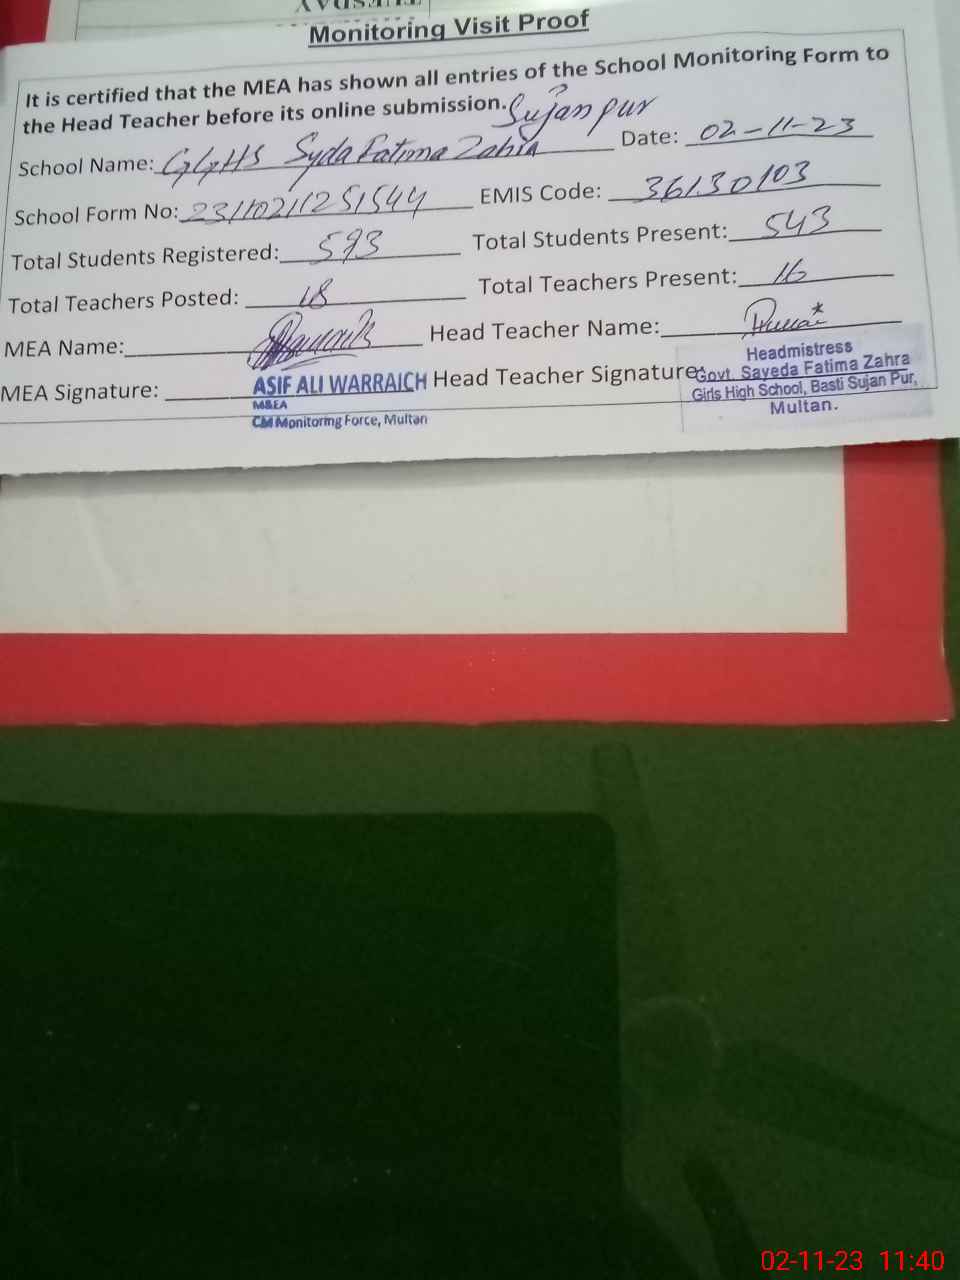 Monitoring Visit Proof
It is certified that the MEA has shown all entries of the School Monitoring Form to
the Head Teacher before its online submission. Sujanpur
School Name: GGHS Syda Fatima Zahra Date: 02-11-23
School Form No: 23110211251544 EMIS Code: 36130103
Total Students Registered: 593 Total Students Present: 543
Total Teachers Posted: 18 Total Teachers Present: 16
MEA Name: Head Teacher Name:
MEA Signature: ASIF ALI WARRAICH Head Teacher Signature:
M&EA
CM Monitoring Force, Multan
Headmistress
Govt. Sayeda Fatima Zahra
Girls High School, Basti Sujan Pur,
Multan.
02-11-23 11:40